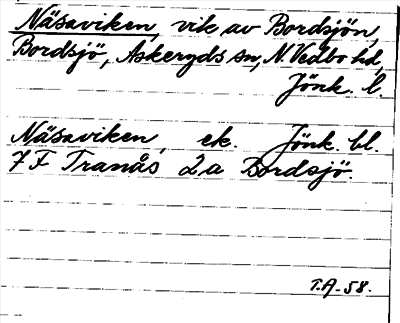 Näsaviken, vik av Bordsjön,
Bordsjö, Askeryds sn, N. Vedbo hd,
Jönk. l.
Näsaviken, ek. Jönk. bl.
7 F Tranås 2a Bordsjö.
T.A. 58.